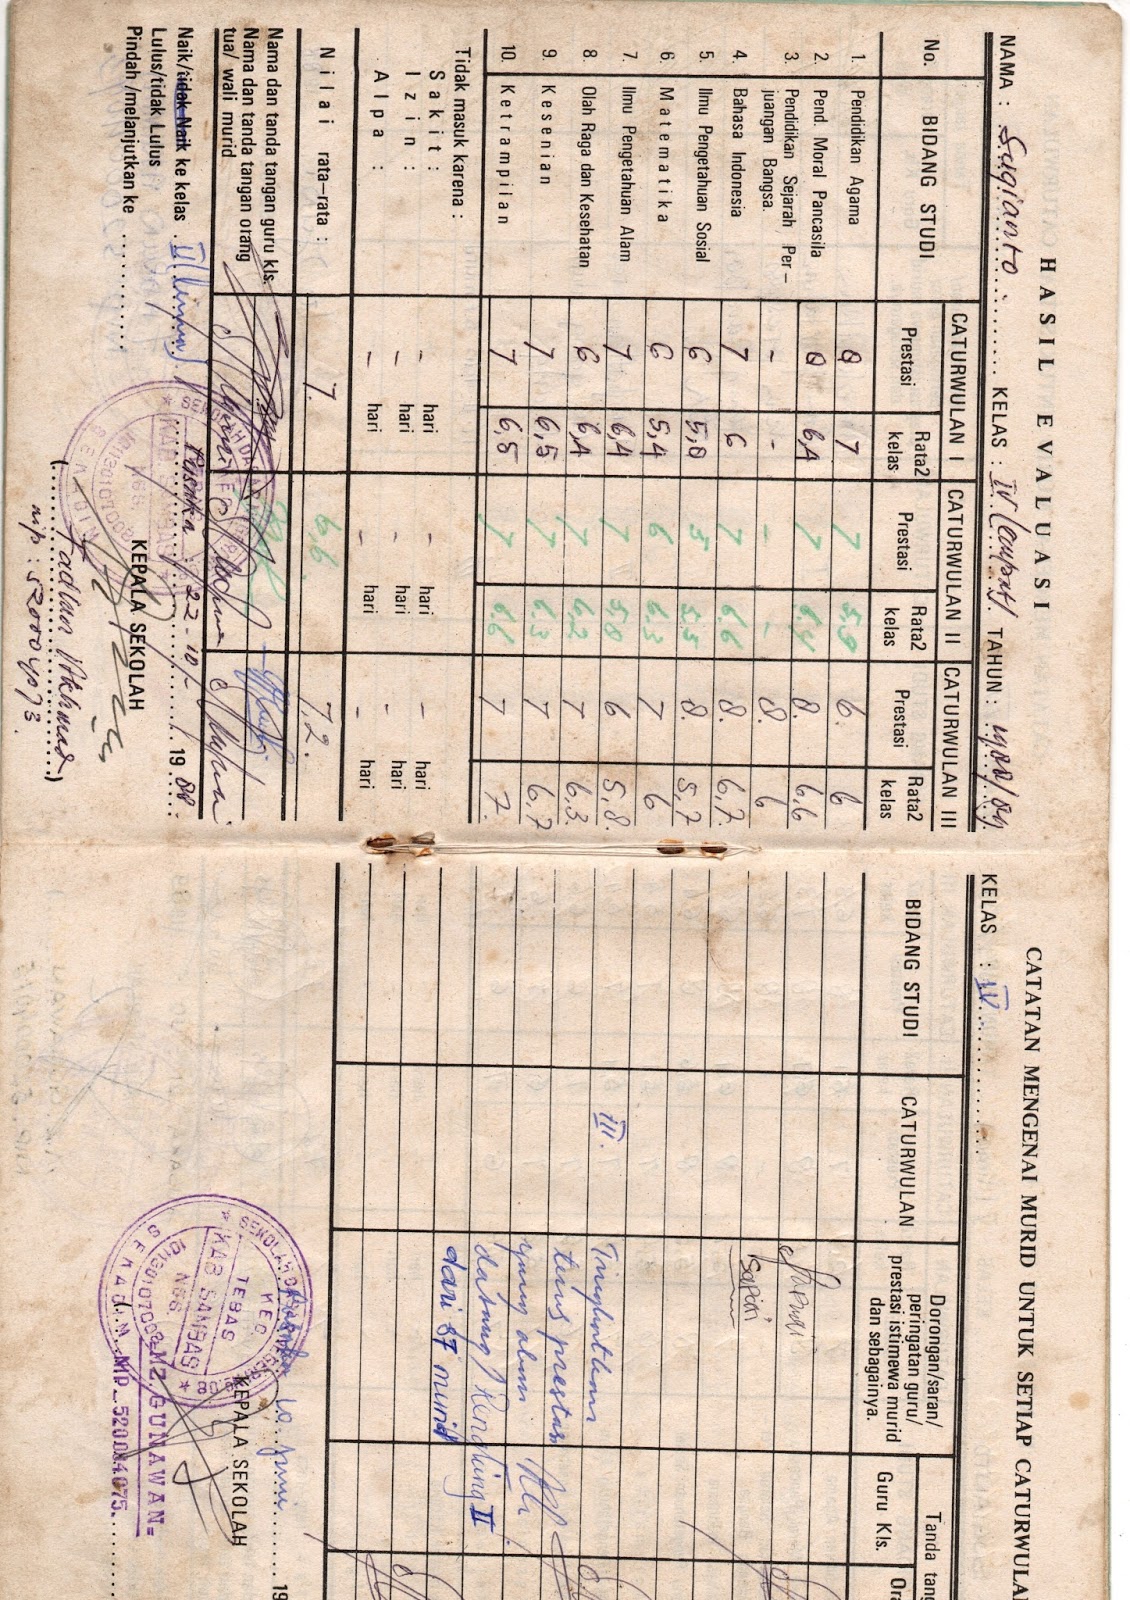 HASIL EVALUASI
NAMA : Sugianto KELAS : IV (empat) TAHUN : 1988/89
No. BIDANG STUDI CATURWULAN I CATURWULAN II CATURWULAN III
Prestasi Rata2 kelas Prestasi Rata2 kelas Prestasi Rata2 kelas
1. Pendidikan Agama 8 7 7 5,9 6. 6
2. Pend. Moral Pancasila 8 6,4 7 6,4 8. 6,6
3. Pendidikan Sejarah Per-
juangan Bangsa. - - - - 8. 6
4. Bahasa Indonesia 7 6 7 6,6 8. 6,7
5. Ilmu Pengetahuan Sosial 6 5,8 5,5 8. 5,7
6. Matematika 6 5,4 6 6,3 7 6
7. Ilmu Pengetahuan Alam 7 6,4 7 5,8 6 5,8
8. Olah Raga dan Kesehatan 6 6,4 7 6,2 7 6,3
9. Kesenian 7 6,5 7 6,3 7 6,7
10. Ketrampilan 7 6,5 7 6,6 7 7
Tidak masuk karena :
Sakit : - hari - hari - hari
Izin : - hari - hari - hari
Alpa : - hari - hari - hari
Nilai rata-rata : 7. 6,6 7,2.
Nama dan tanda tangan guru kls.
Nama dan tanda tangan orang
tua/ wali murid
Naik/tidak Naik ke kelas
Lulus/tidak Lulus 22-10- 1988
Pindah /melanjutkan ke
KEPALA SEKOLAH
(Fadlan Akhmad)
nip : 520004073
CATATAN MENGENAI MURID UNTUK SETIAP CATURWULAN
KELAS : IV
BIDANG STUDI CATURWULAN Dorongan/saran/
peringatan guru/
prestasi istimewa murid
dan sebagainya.
Tanda tang
Guru Kls. Ora
Sapiri
III. Tingkatkan
terus prestasi
yang akan
datang/ Rengking II
dari 37 murid
10 Juni 19
KEPALA SEKOLAH
KEC
TEBAS
KAB SAMBAS
MZ. GUNAWAN=
NIP_520004075